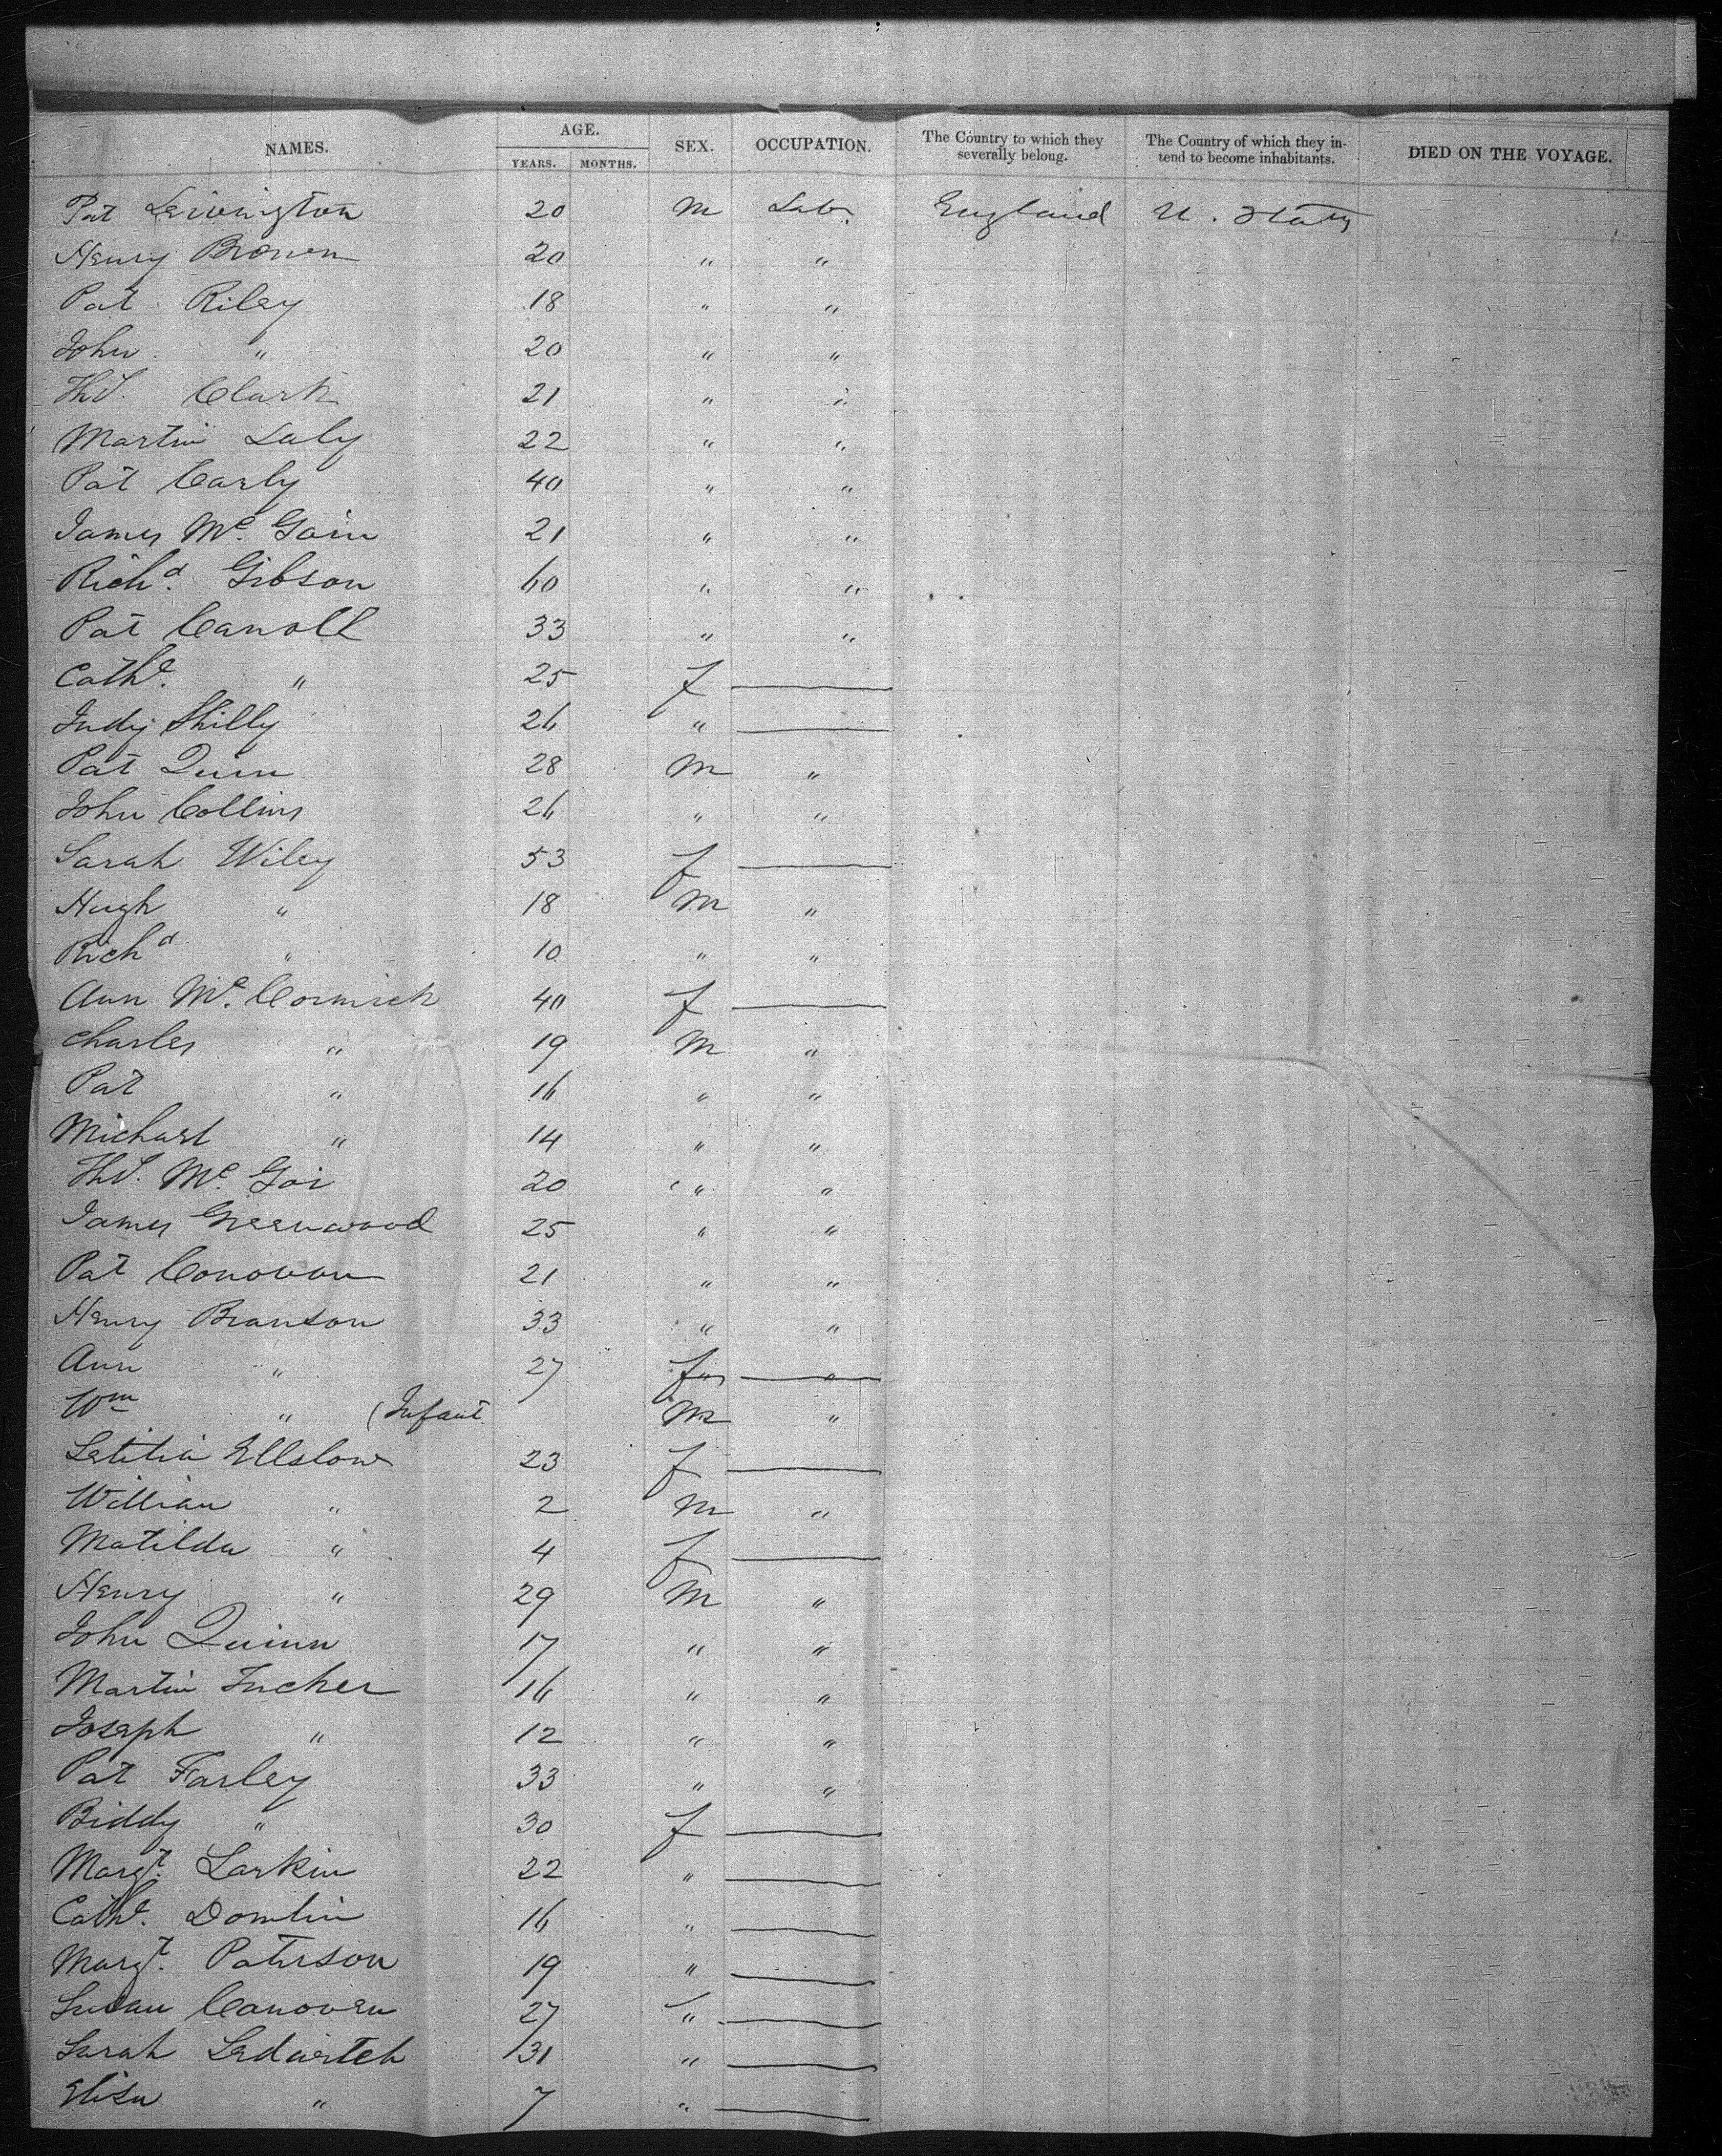 NAMES. AGE. YEARS. MONTHS. SEX. OCCUPATION. The Country to which they severally belong. The Country of which they intend to become inhabitants. DIED ON THE VOYAGE.
Pat 20 m Labr. England U. States
Henry Brown 20 " "
Pat Riley 18 " "
John " 20 " "
Ths. Clark 21 " "
Martin Laly 22 " "
Pat Carly 40 " "
James Mc. Gain 21 " "
Richd. Gibson 60 " "
Pat Carroll 33 " "
Cathe. " 25 f —
Judy Shilly 26 " —
Pat Quin 28 m "
John Collins 26 " "
Sarah Wiley 53 f —
Hugh " 18 m "
Richd " 10 " "
Ann Mc. Cormick 40 f —
Charles " 19 m "
Pat " 16 " "
Michael " 14 " "
Ths. Mc. Goi 20 " "
James Greenwood 25 " "
Pat Conovan 21 " "
Henry Branson 33 " "
Ann " 27 f — "
Wm " (Infant m "
Letitia Ellslow 23 f —
William " 2 m "
Matilda " 4 f —
Henry " 29 m "
John Quinn 17 " "
Martin Tucker 16 " "
Joseph " 12 " "
Pat Farley 33 " "
Biddy " 30 f —
Margt. Larkin 22 " —
Cathe. Domlin 16 " —
Margt. Paterson 19 " —
Susan Canoven 27 " —
Sarah Ledwitch 31 " —
Eliza " 7 " —